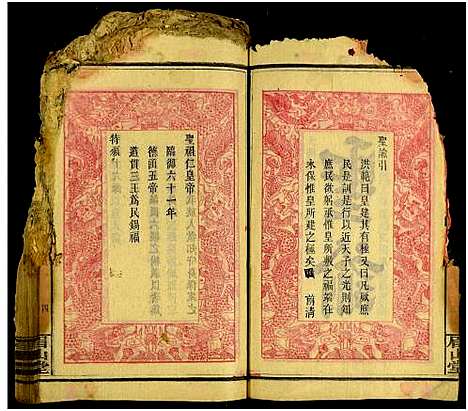 聖諭引
洪範曰皇建其有極又曰凡厥庶
民是訓是行以近天子之光則知
庶民欲躬承惟皇所敷之福當在
永保惟皇所建之極矣
前清
聖祖仁皇帝
臨御六十一年
德滙五帝
道貫三王為民錫福
特頒
四
眉山堂
眉山堂